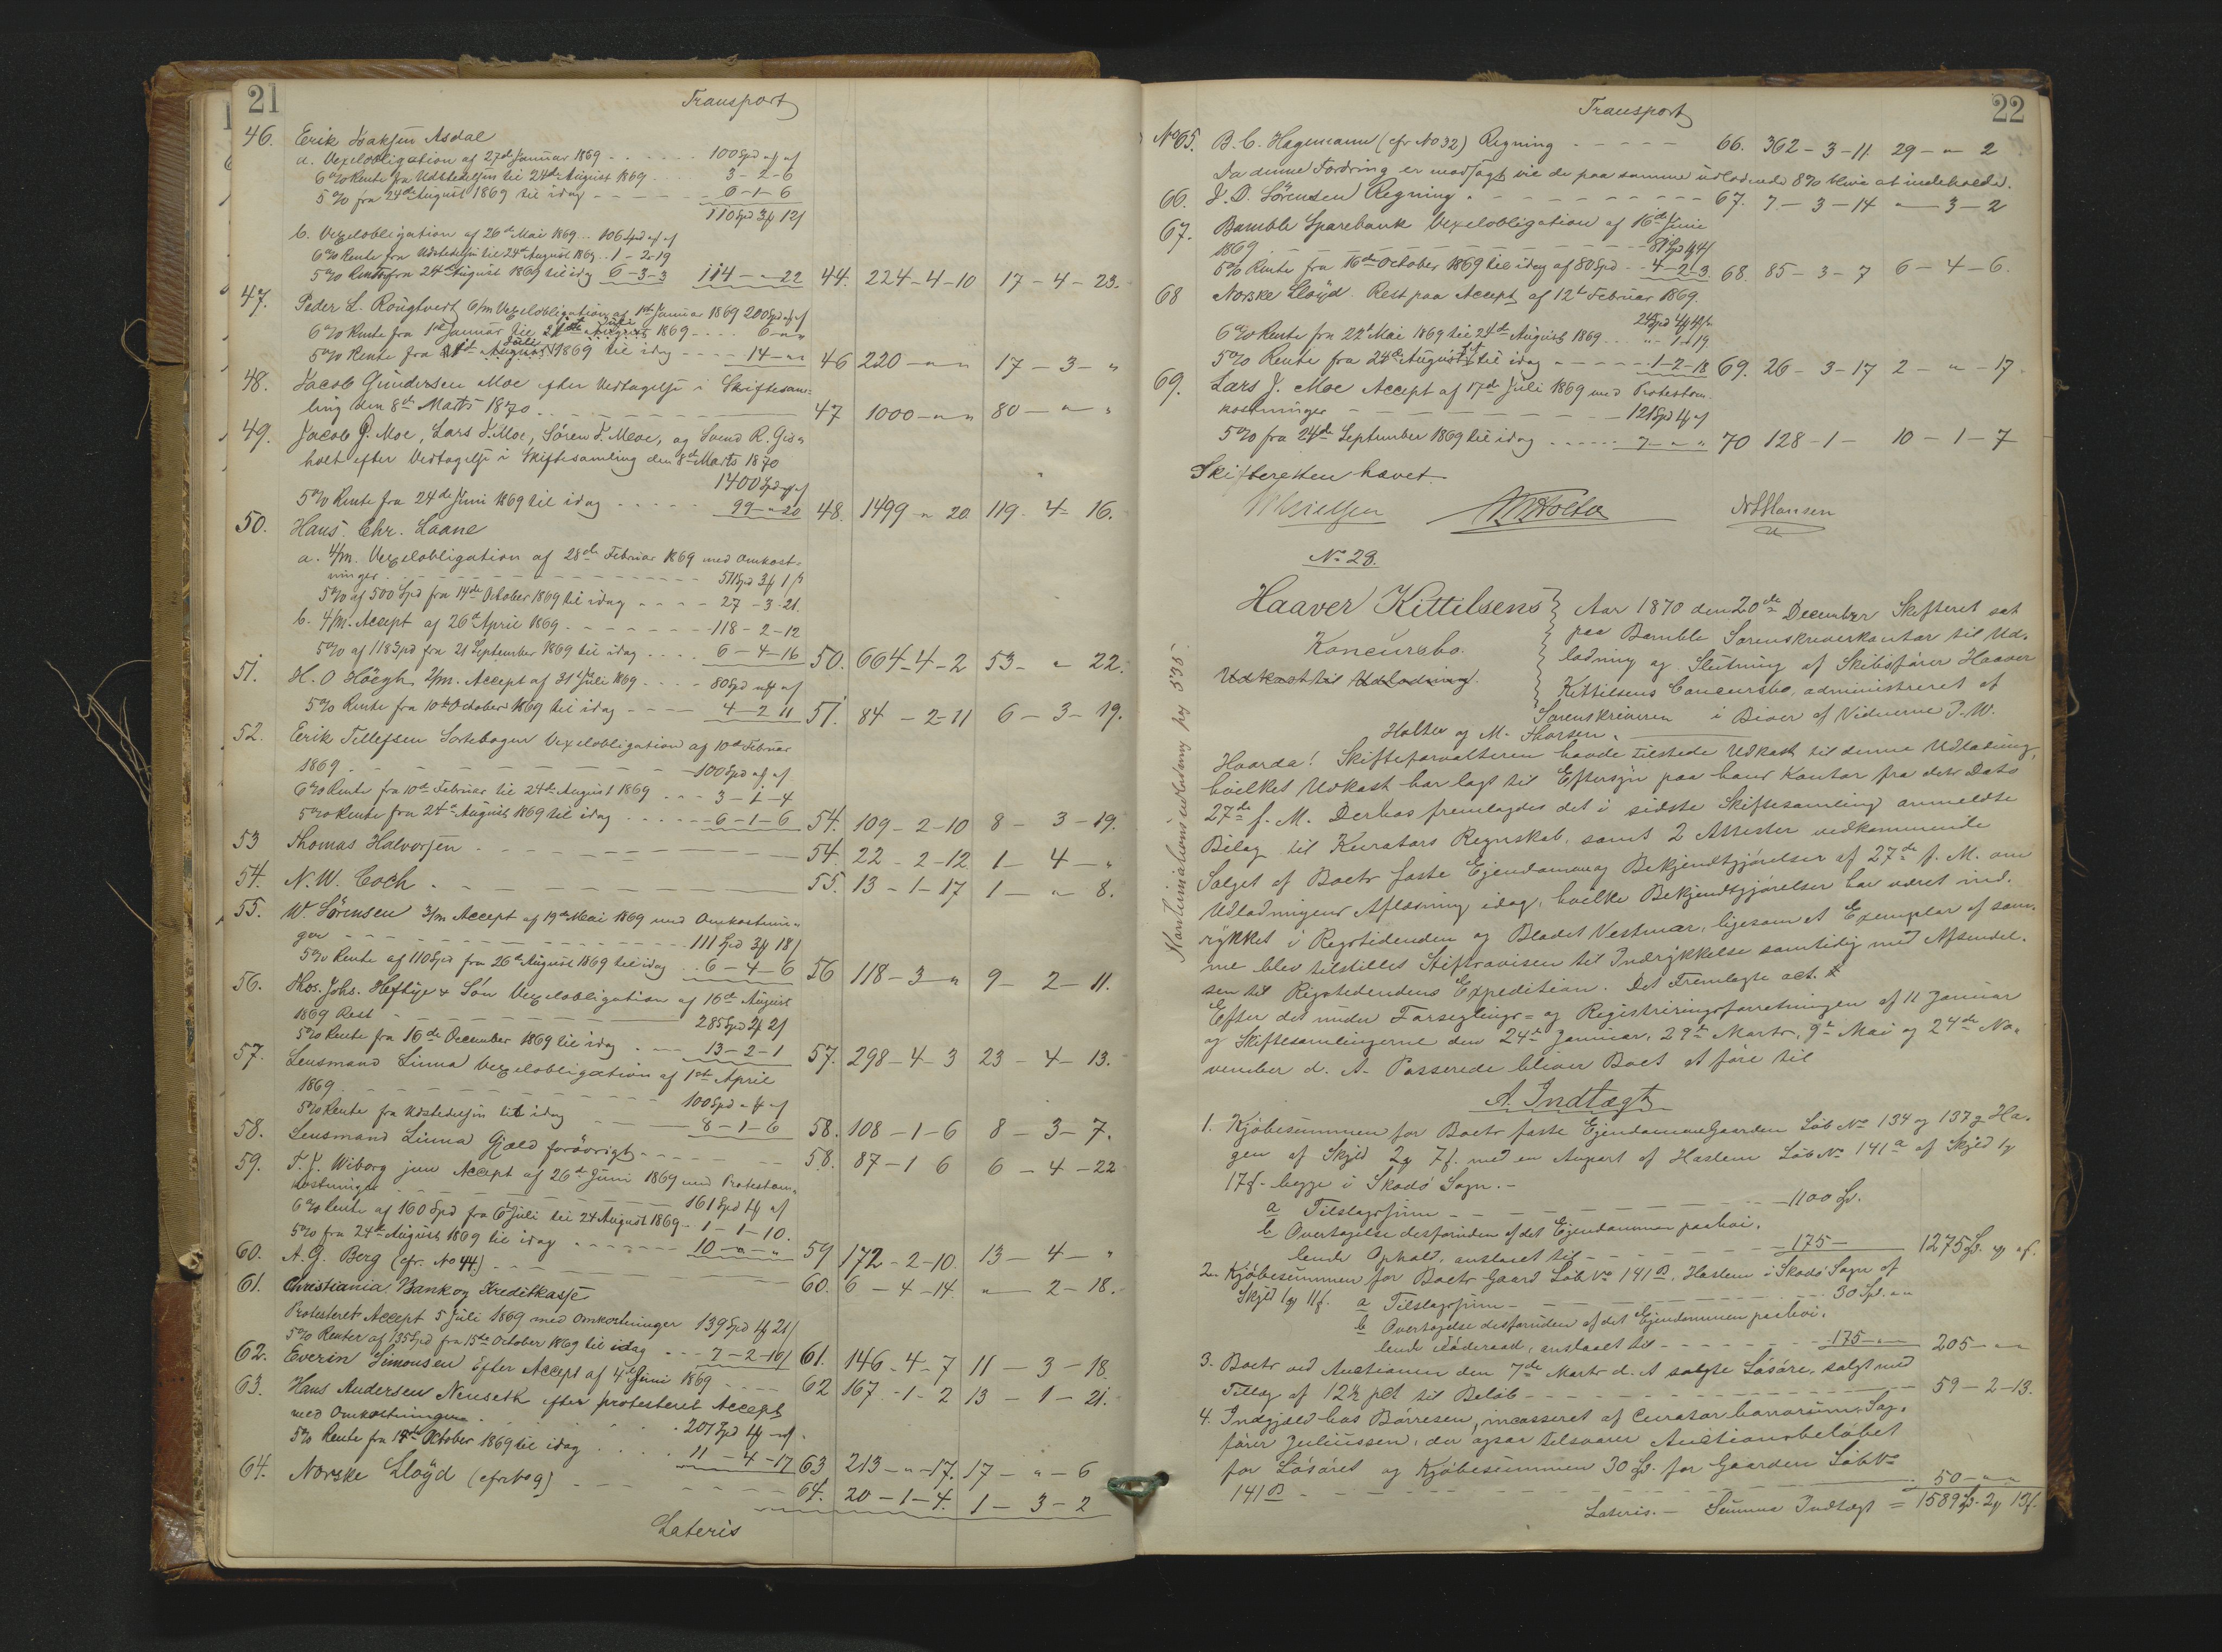 21
Transport
46. Erik Isaksen Asdal
a. Vexelobligation af 27de Januar 1869 - - - - - - 100 Spd " "
6 % Rente fra Udstedelsen til 24de August 1869 . . . 3 - 2 - 6
5 % fra 24de August 1869 til idag - - - - - 6 - 1 - 6
110 Spd 3 12
b. Vexelobligation af 26de Mai 1869 . . . 106 Spd " "
6 % Rente fra Udstedelsen til 24de August 1869 . . 1 - 2 - 19
5 % Rente fra 24de August 1869 til idag 6 - 3 - 3 114 - " - 22 44. 224 - 4 - 10 17 - 4 - 23.
47. Peder L. Rougtvedt 6/m Vexelobligation af 1ste Januar 1869 200 Spd " "
6 % Rente fra 1ste Januar til Juli 1869 - - . . 6 - " "
5 % Rente fra Juli 1869 til idag - - - - 14 - " " 46 220 - " - " 17 - 3 - "
48. Jacob Gundersen Moe efter Vedtagelse i Skiftesam-
ling den 8de Marts 1870 47 1000 - " " 80 - " - "
49. Jacob G. Moe, Lars J. Moe, Sören J. Moe, og Svend R. Gis-
holt efter Vedtagelse i Skiftesamling den 8de Marts 1870
1400 Spd " "
5 % Rente fra 24de Juni 1869 til idag . . . . . 99 - " 20 48. 1499 " 20 119. 4 - 16.
50. Hans Chr. Laane
a. 4/m. Vexelobligation af 28de Februar 1869 med Omkost-
ninger - - - - - - 511 Spd 3 1
5 % af 500 Spd fra 14de October 1869 til idag - - - - 27 - 3 - 21.
b. 4/m. Accept af 26de April 1869 - - - - - 118 - 2 - 12
5 % af 118 Spd fra 21 September 1869 til idag . . . . 6 - 4 - 16 50. 664 - 4 - 2 53 - " 22.
51. H. O Höegh 2/m. Accept af 31te Juli 1869 - - - - 80 Spd " "
5 % Rente fra 10de October 1869 til idag - - - - 4 - 2 11 51. 84 - 2 - 11 6 - 3 - 19.
52. Erik Tellefsen Sortebogen Vexelobligation af 10de Februar
1869 - - - - - - 100 Spd " "
6 % Rente fra 10de Februar til 24de August 1869 - - - 3 - 1 - 4
5 % Rente fra 24de August 1869 til idag . . . . 6 - 1 - 6 54. 109 - 2 - 10 8 - 3 - 19.
53 Thomas Halvorsen - - - - - - 54. 22 - 2 - 12 1 - 4 - "
54. N. W. Coch - - - - - - 55. 13 - 1 - 17 1 - " 8.
55. W. Sörensen 3/m Accept af 19de Mai 1869 med Omkostnin-
ger - - - - - - 111 Spd 3 18
5 % Rente af 110 Spd fra 26de August 1869 til idag . . 6 - 4 - 6 56 118 - 3 - " 9 - 2 - 11.
56. Thos. Johs. Heftye & Sön Vexelobligation af 16de August
1869 Rest - - - - - - 285 Spd 2 2
5 % Rente fra 16de December 1869 til idag . - - 13 - 2 - 1 57. 298 - 4 - 3 23 - 4 - 13.
57. Lensmand Linna Vexelobligation af 1ste April
1869 - - - - - - 100 Spd " "
5 % Rente fra Udstedelsen til idag - - - 8 - 1 - 6 58. 108 - 1 - 6 8 - 3 - 7.
58. Lensmand Linna Gjæld forövrigt - - - - 58. 87 - 1 6 6 - 4 - 22
59. T. J. Wiborg jun Accept af 26de Juni 1869 med Protestom-
kostninger - - - - - 161 Spd 4 "
6 % Rente af 160 Spd fra 6 Juli til 24 August 1869 - 1 - 1 - 10.
5 % fra 24de August 1869 til idag - - - - 10 - " - " 59 172 - 2 - 10. 13 - 4 - "
60. A. G. Berg (cfr. No 44) - - - - - 60. 6 - 4 - 14. " - 2 - 18.
61. Christiania Bank og Kreditkasse
Protesteret Accept 5 Juli 1869 med Omkostninger 139 Spd 1 21
5 % Renter af 135 Spd fra 15de October 1869 til idag - - - 7 - 2 - 10 61. 146 - 4 - 7 11 - 3 - 18.
62. Everin Simonsen Efter Accept af 4de Juni 1869 - - - - 62 167 - 1 - 2 13 - 1 - 21.
63. Hans Andersen Nenseth efter protesteret Accept
med Omkostninger - - - 201 Spd 1 "
5 % Rente fra 15de October 1869 til idag . . . . 11 - 4 - 17 63 213 - " - 17. 17 - " - 6
64. Norske Lloyd (cfr No 9) - - - - - 64. 20 - 1 - 4. 1 - 3 - 2
Lateris
22
Transport
No 65. B. C. Hagemann (cfr No 32) Regning - - - - - 66. 362 - 3 - 11. 29 - " 2
Da denne Fordring er modsagt vil de paa samme udlodende 8 % blive at indeholde.
66. J. D. Sörensen Regning - - - - - - 67. 7 - 3 - 14 " - 3 - 2
67. Bamble Sparebank Vexelobligation af 16de Juni
1869 - - - - - 81 Spd 4
5 % Rente fra 16de October 1869 til idag af 80 Spd - - 4 - 2 - 3. 68. 85 - 3 - 7 6 - 4 - 6.
68 Norske Lloyd Rest paa Accept af 12te Februar 1869.
24 Spd 4
6 % Rente fra 22de Mai 1869 til 24de August 1869 . . . " - 1 - 19
5 % Rente fra 24de August til idag - - - - 1 - 2 - 18 69. 26 - 3 - 17 2 - " - 17
69. Lars J. Moe Accept af 17de Juli 1869 med Protestom-
kostninger - - - - - 121 Spd 1 "
5 % fra 24de September 1869 til idag . . . . . 7 - " " 70 128 - 1 - 10 - 1 - 7
Skifteretten hævet
Nielsen Holter Hansen
No 23.
Haaver Kittilsens
Koncursbo.
Udkast til Udlodning.
Nantlimiations indledning pag 535.
Aar 1870 den 20de December Skifteret sat
paa Bamble Sorenskriverkontor til Ud-
lodning og Slutning af Skibsfører Haaver
Kittilsens Concursbo, administreret af
Sorenskriveren i Biver af Vidnerne J. W.
Holter og M. Thorsen. -
Hvorda! Skifteforvalteren havde tilstede Udkast til denne Udlodning,
hvilket Udkast har lagt til Eftersyn paa hans Kontor fra dets Dato
27de f. M. Derhos fremlagdes det i sidste Skiftesamling anmeldte
Bilag til Kurators Regnskab, samt 2 Attester vedkommende
Salget af Boets faste Ejendomme og Bekjendtgjörelser af 27de f. M. om
Udlodningens Aflæsning idag, hvilke Bekjendtgjörelser har været ind-
rykket i Rigstidenden og Bladet Vestmar, ligesom et Exemplar af sam-
me blev tilstillet Stiftsavisen til Indrykkelse samtidig med Afsendel-
sen til Rigstidendens Expedition. Det Fremlagte act.
Efter det under Forseglings- og Registreringsforretningen af 11 Januar
og Skiftesamlingerne den 24de Januar, 29de Marts, 9de Mai og 24de No-
vember d. A. Passerede bliver Boet at före til
A. Indtægt
1. Kjöbesummen for Boets faste Ejendomme Gaarden Löb No 134 og 137 Ha-
gen af Skyld 2 7 med en Anpart af Haslem Löb No 141 a af Skyld 1
17 begge i Skadö Sogn. -
a Tilslagssum - - - - - 1100 Sp.
b Overtagelse desforuden af det Ejendommen paahvi-
lende Ophold, anslaaet til - - - - - 175 - 1275 Sp. " "
2. Kjöbesummen for Boets Gaard Löb No 141 B, Haslem i Skadö Sogn af
Skyld 1 11 a Tilslagssum - - - - - 30 Sp. " "
b Overtagelse desforuden af det Ejendommen paahvi-
lende Föderaad, anslaaet til - - - - - 175 - " 205 - " "
3. Boets ved Auctionen den 7de Marts d. A solgte Lösöre, solgt med
Tillæg af 12½ pCt til Beløb - - - - - 59 - 2 - 13.
4. Indgjæld hos Börresen, incasseret af Curator bonorum, Sag-
förer Juliussen, der ogsaa tilsvarer Auctionsbelöbet
for Lösöret og Kjöbesummen 30 Sp. for Gaarden Löb No
141 B - - - - - 50 - " "
Lateris. - Summa Indtægt = 1589 Sp. 2 13.